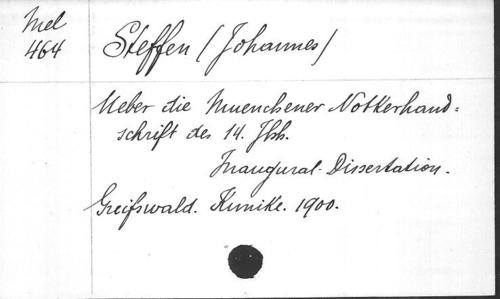 Mel
464
Steffen (Johannes)
Ueber die Muenchener Notkerhand=
schrift des 14. Jhh.
Inaugural-Dissertation.
Greifswald. Kunike. 1900.